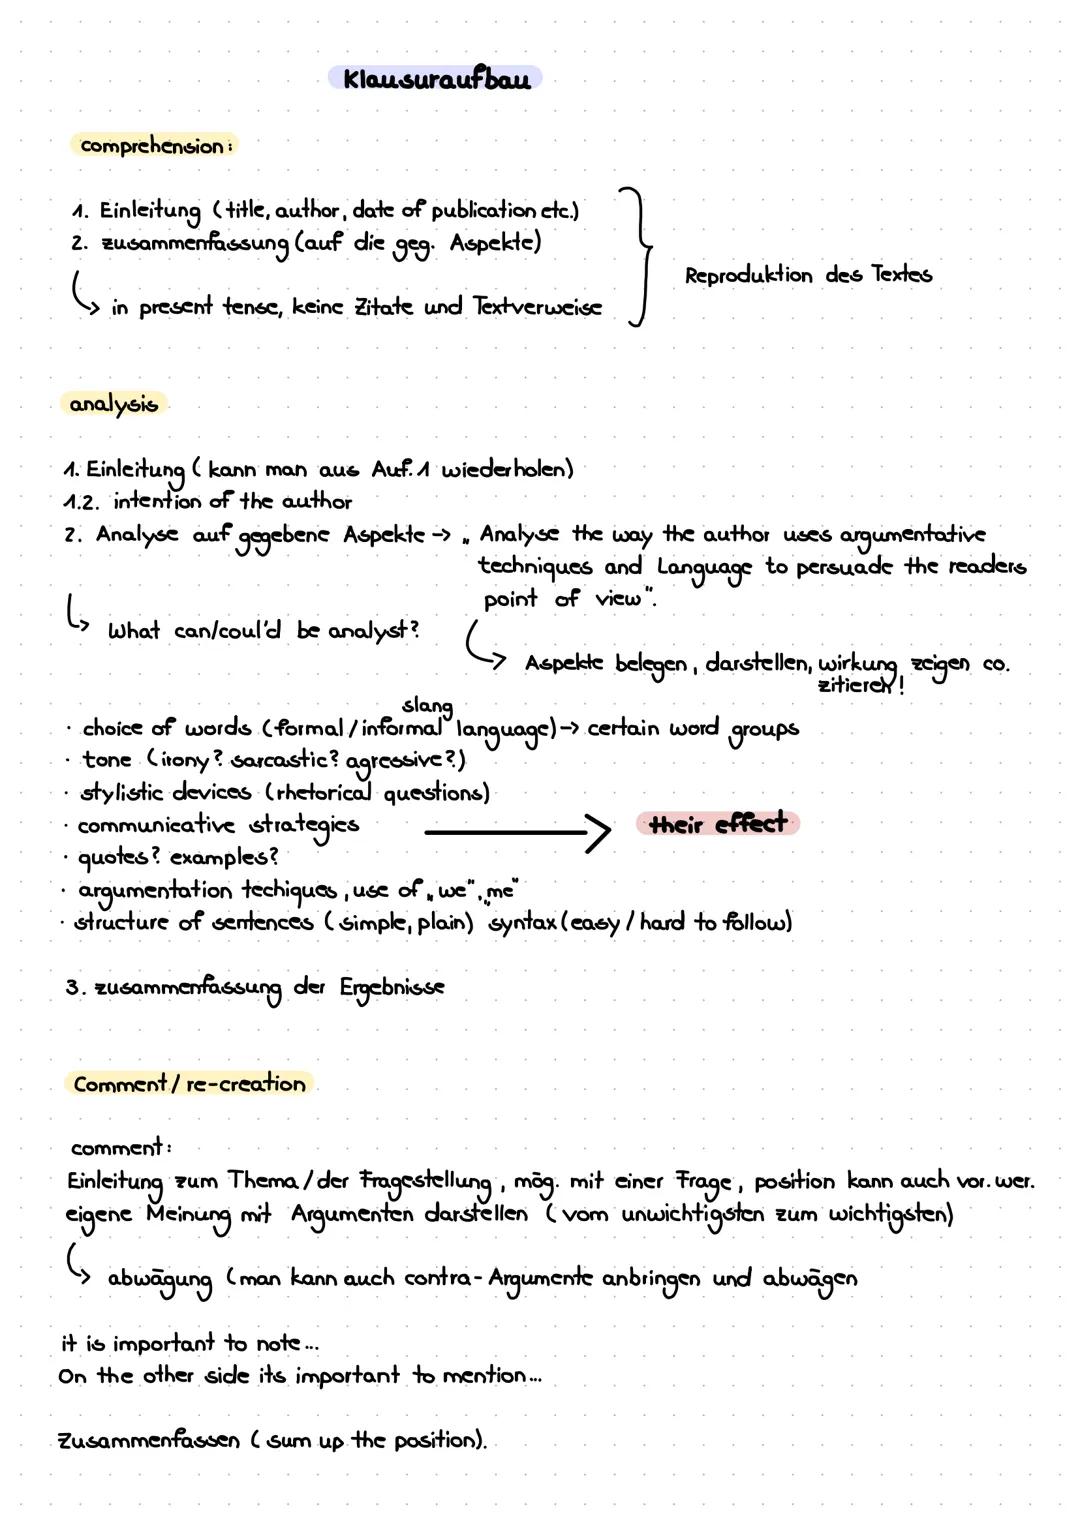 Klausuraufbau
comprehension:
1. Einleitung (title, author, date of publication etc.)
2. zusammenfassung (auf die geg. Aspekte)
Reproduktion des Textes
in present tense, keine Zitate und Textverweise
analysis
1. Einleitung (kann man aus Auf. 1 wiederholen)
1.2. intention of the author
2. Analyse auf gegebene Aspekte → „Analyse the way the author uses argumentative
techniques and Language to persuade the readers
point of view".
What can/coul'd be analyst?
Aspekte belegen, darstellen, wirkung zeigen co.
zitieren!
slang
· choice of words (formal/informal language) → certain word groups
· tone (irony? sarcastic? agressive?)
· stylistic devices (rhetorical questions)
· communicative strategies → their effect
· quotes? examples?
· argumentation techiques, use of „we", „me"
· structure of sentences (simple, plain) syntax (easy/hard to follow)
3. zusammenfassung der Ergebnisse
Comment/re-creation
comment:
Einleitung zum Thema/der Fragestellung, mög. mit einer Frage, position kann auch vor. wer.
eigene Meinung mit Argumenten darstellen (vom unwichtigsten zum wichtigsten)
abwägung (man kann auch contra-Argumente anbringen und abwägen
it is important to note...
On the other side its important to mention...
Zusammenfassen (sum up the position).